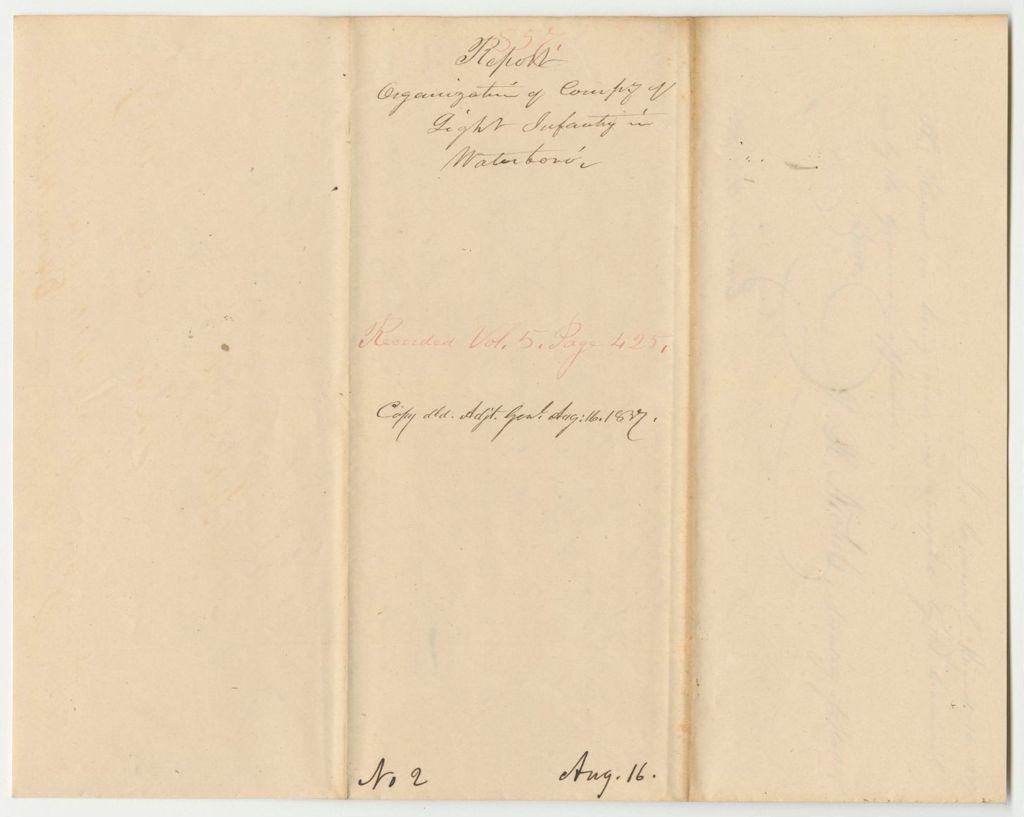 557
Report
Organization of Comp'y of
Light Infantry in
Waterboro'.
Recorded Vol. 5. Page 425.
Copy dld. Adjt. Genl. Aug: 16. 1837.
No 2 Aug. 16.